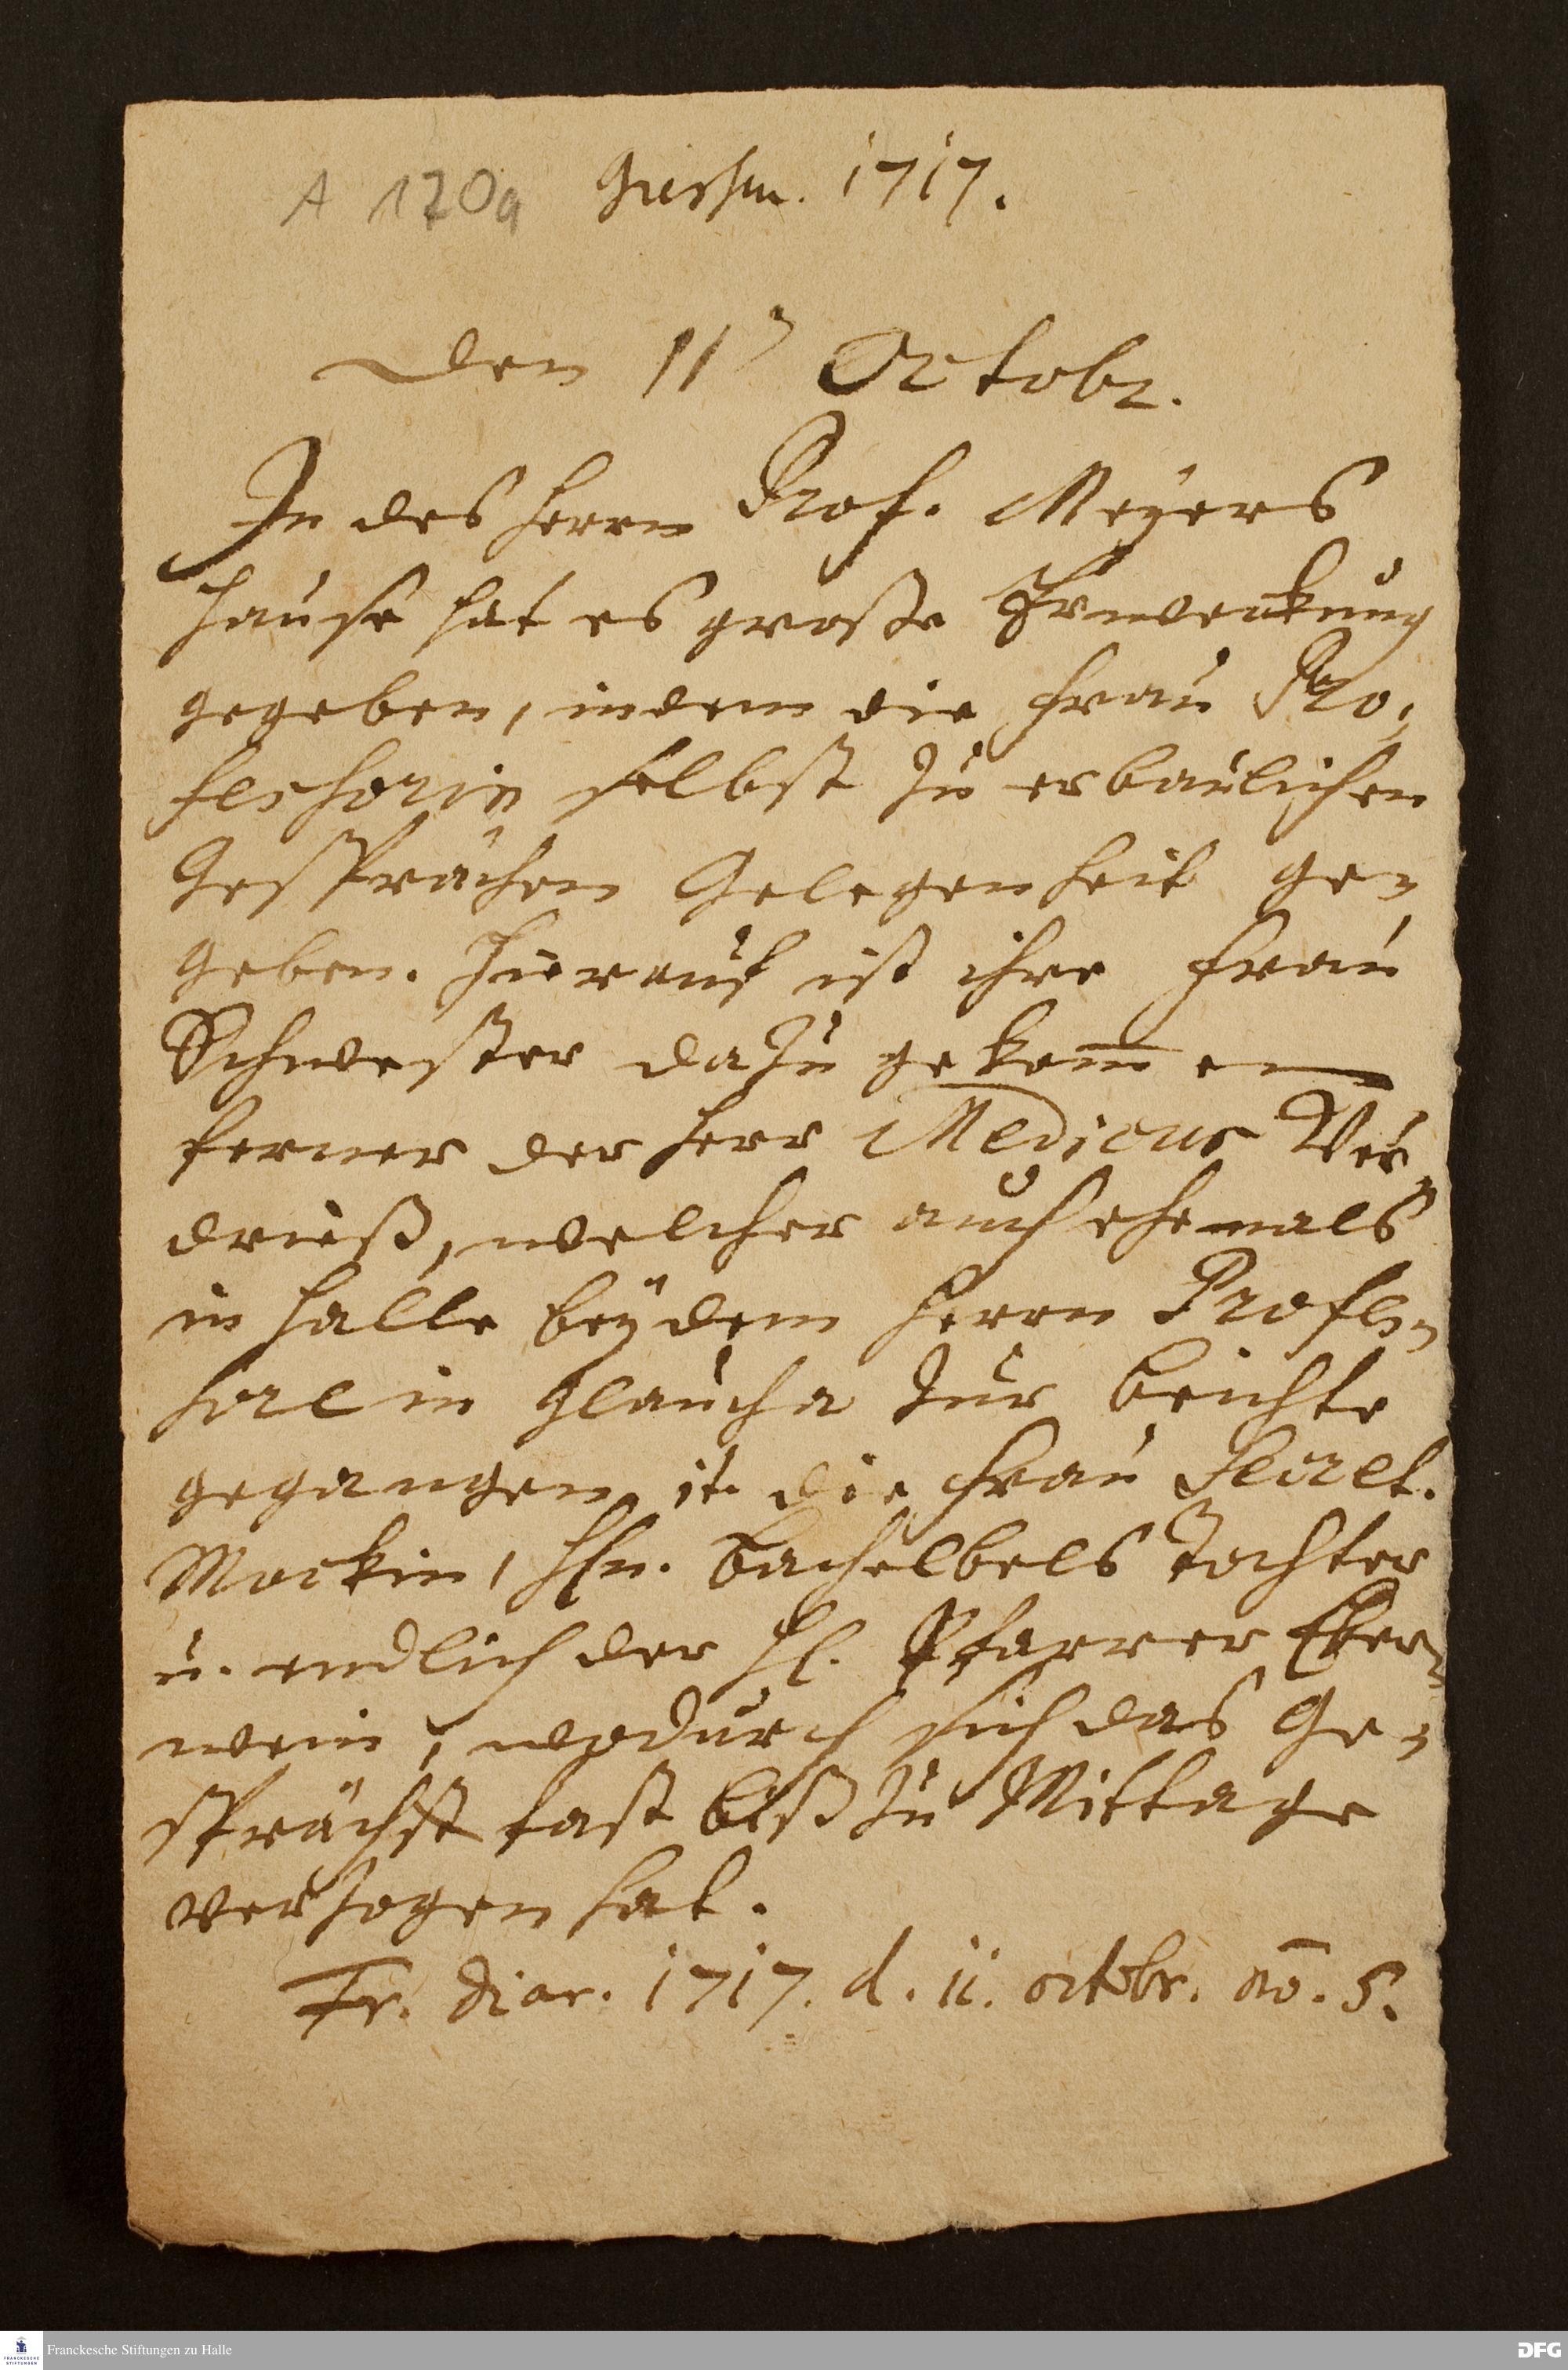 A 170a Giessen. 1717.
Den 11 Octobr.
In des Herrn Prof. Meyers
Hause hat es große Erweckung
gegeben, indem die Frau Pro-
fessorin selbst zu erbaulichen
Gesprächen Gelegenheit ge-
geben. Hierauf ist ihre Frau
Schwester dazu gekom̄en
ferner der Herr Medicus Ver-
drieß, welcher auch ehemals
in Halle bey dem Herrn Profes-
sore in Glaucha zur Beichte
gegangen it. die Frau Secret.
Mockin, Hn. Bachelbels Tochter
u. endlich der H. Pfarrer Eber-
wein, wodurch sich das Ge-
spräch fast biß zu Mittage
verzogen hat.
Fr. Diar. 1717. d. 11. octobr. no. 5.
Franckesche Stiftungen zu Halle
DFG